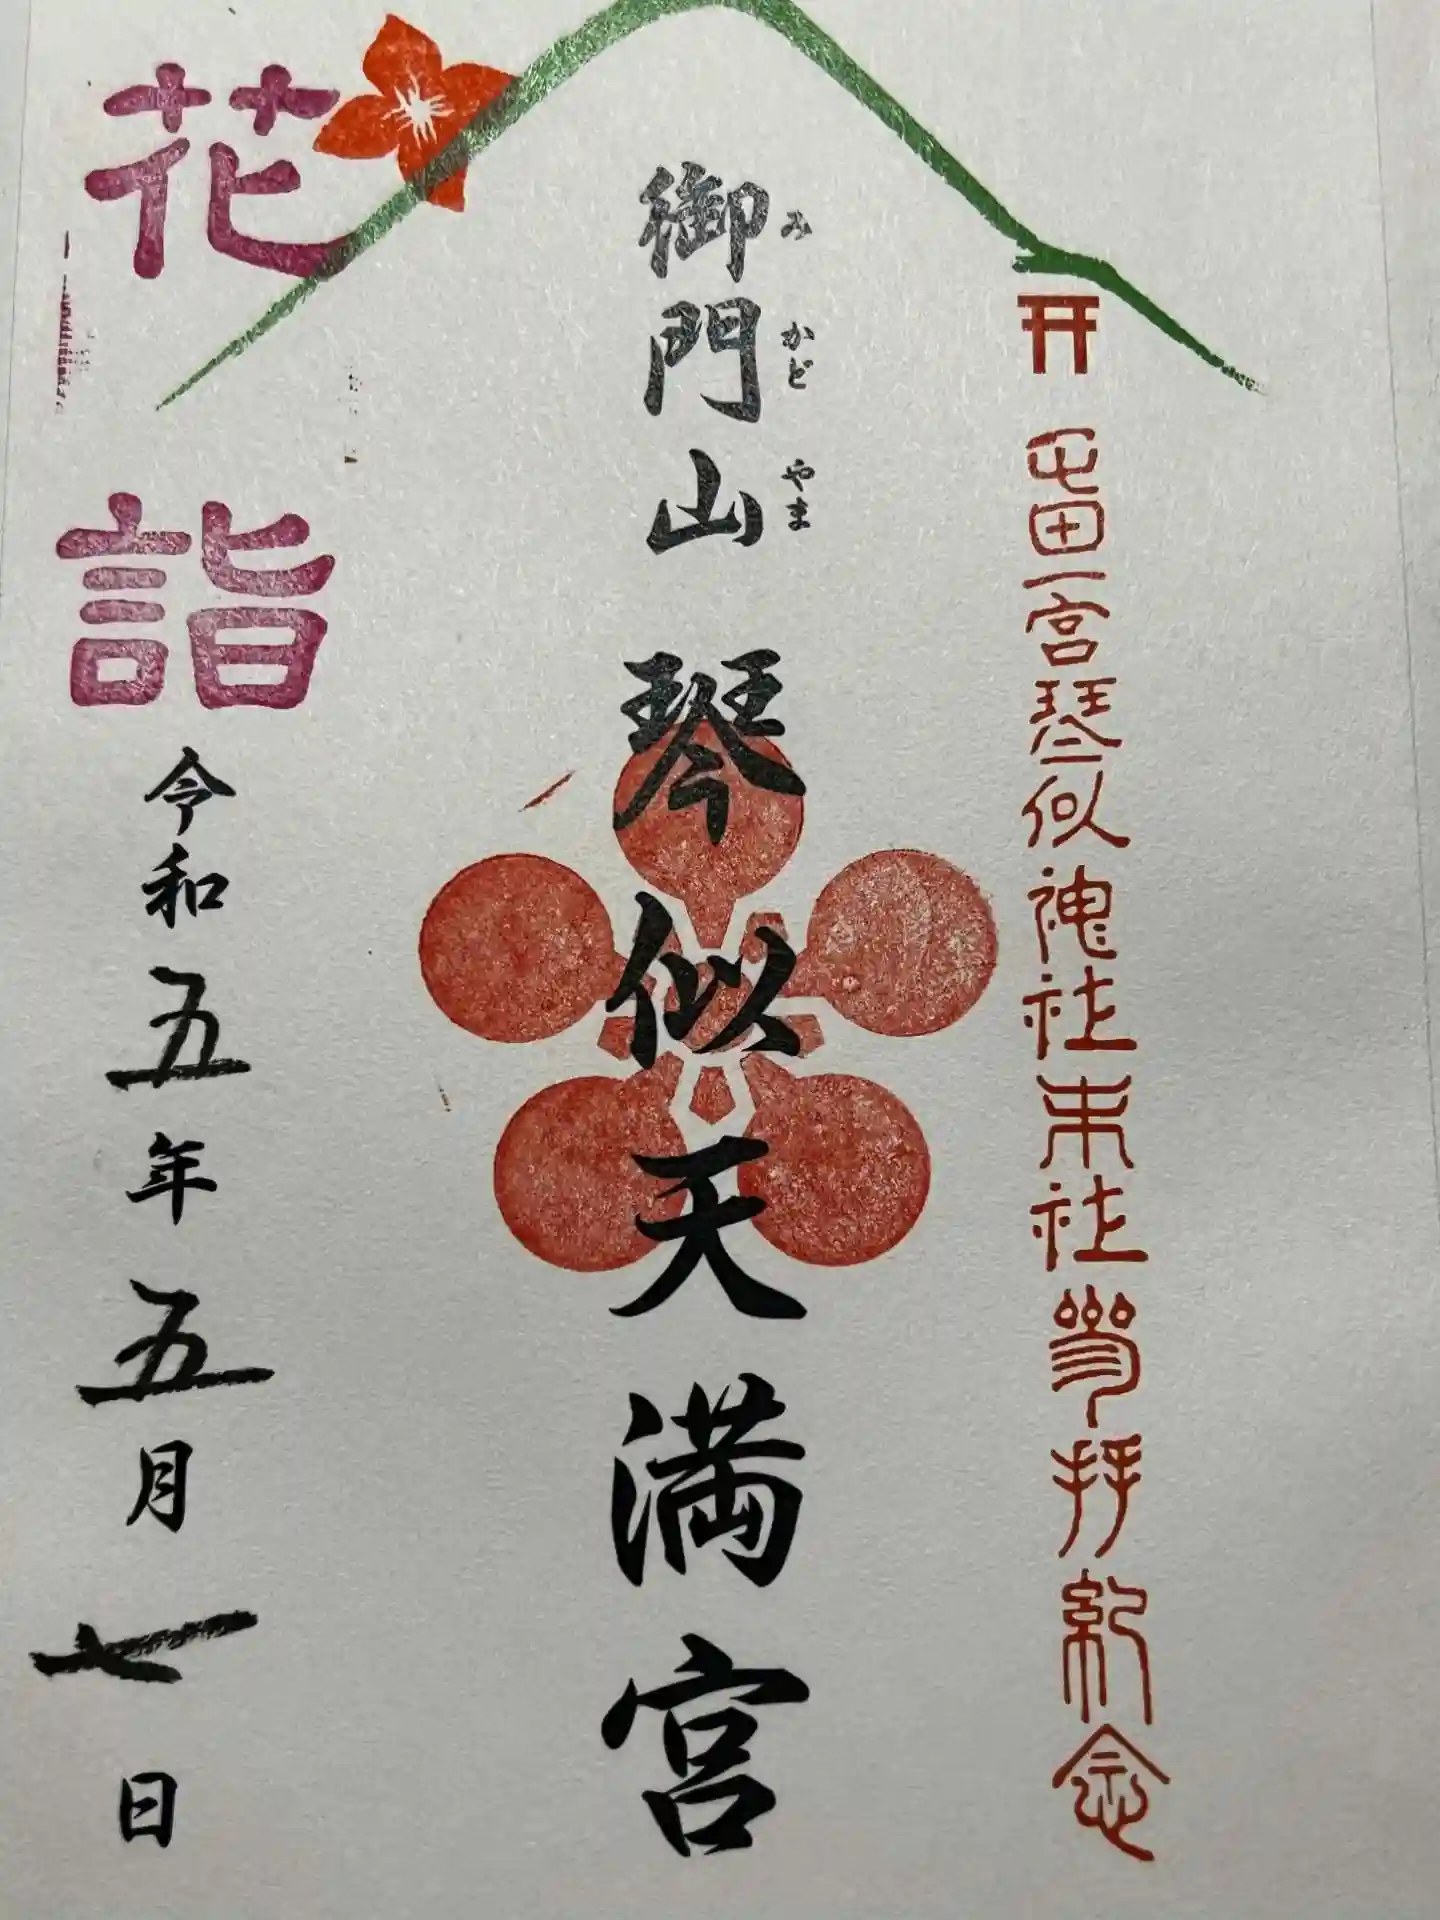 屯田一宮琴似神社末社参拝紀念
みかどやま
御門山 琴似天満宮
花詣
令和五年五月七日